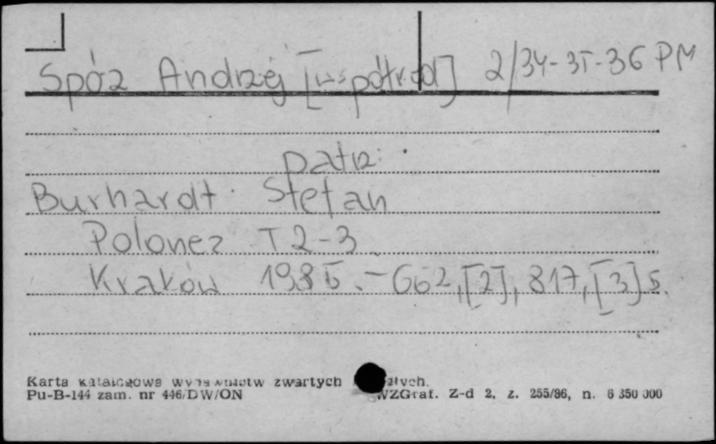 Spóz Andrzej [współred] 2/34-35-36 PM
patrz:
Burhardt Stefan
Polonez T 2-3
Kraków 1985. - 662, [2], 817, [3] s.
Karta katalogowa wydawnictw zwartych
Pu-B-144 zam. nr 446/DW/ON WZGraf. Z-d 2, z. 255/86, n. 6 350 000